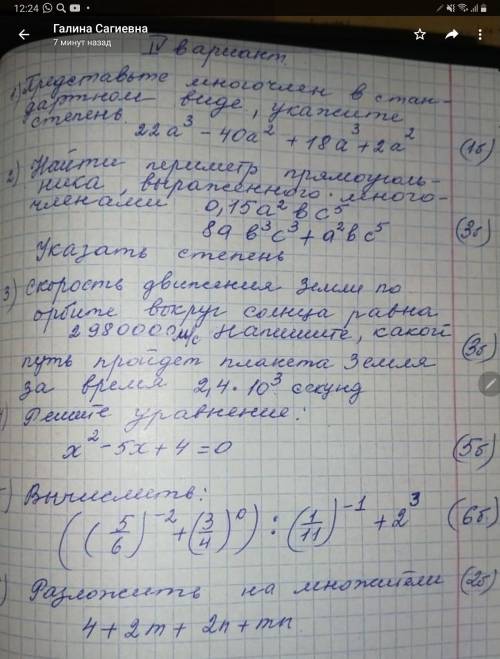 12:24
Галина Сагиевна
7 минут назад
IV вариант
1) Представьте многочлен в стан-
дартном виде, укажите
степень.
22a³ - 40a² + 18a³ + 2a² (1б)
2) Найти периметр прямоуголь-
ника, выраженного много-
членами 0,15a²bc⁵
8ab³c³ + a²bc⁵ (3б)
Указать степень
3) Скорость движения Земли по
орбите вокруг солнца равна
2980000 м/с Напишите, какой
путь пройдет планета Земля (3б)
за время 2,4·10³ секунд
) Решите уравнение:
x² - 5x + 4 = 0 (5б)
) Вычислить:
((5/6)⁻² + (3/4)⁰) : (1/11)⁻¹ + 2³ (6б)
) Разложить на множители (2б)
4 + 2m + 2n + mn